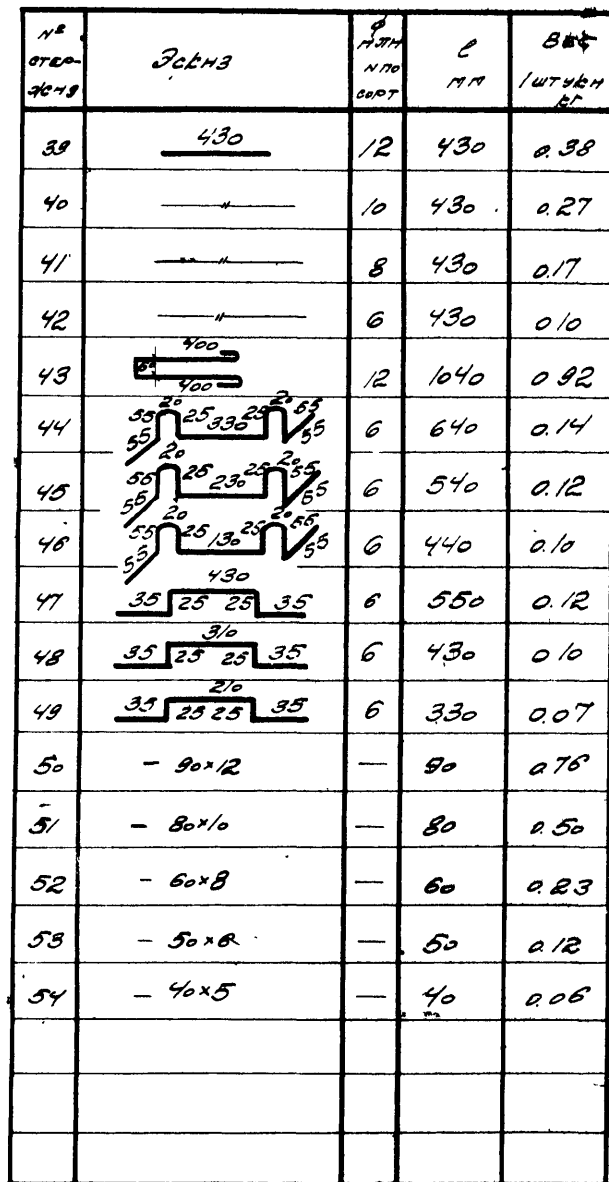 № стержня Эскиз Ф мм или № по сорт ℓ мм Вес 1 штуки кг
39 430 12 430 0.38
40 —〃— 10 430 0.27
41 —〃— 8 430 0.17
42 —〃— 6 430 0.10
43 400 60 400 12 1040 0.92
44 55 55 20 25 330 25 20 55 55 6 640 0.14
45 55 55 20 25 230 25 20 55 55 6 540 0.12
46 55 55 20 25 130 25 20 55 55 6 440 0.10
47 35 25 430 25 35 6 550 0.12
48 35 25 310 25 35 6 430 0.10
49 35 25 210 25 35 6 330 0.07
50 - 90×12 — 90 0.76
51 - 80×10 — 80 0.50
52 - 60×8 — 60 0.23
53 - 50×6 — 50 0.12
54 - 40×5 — 40 0.06